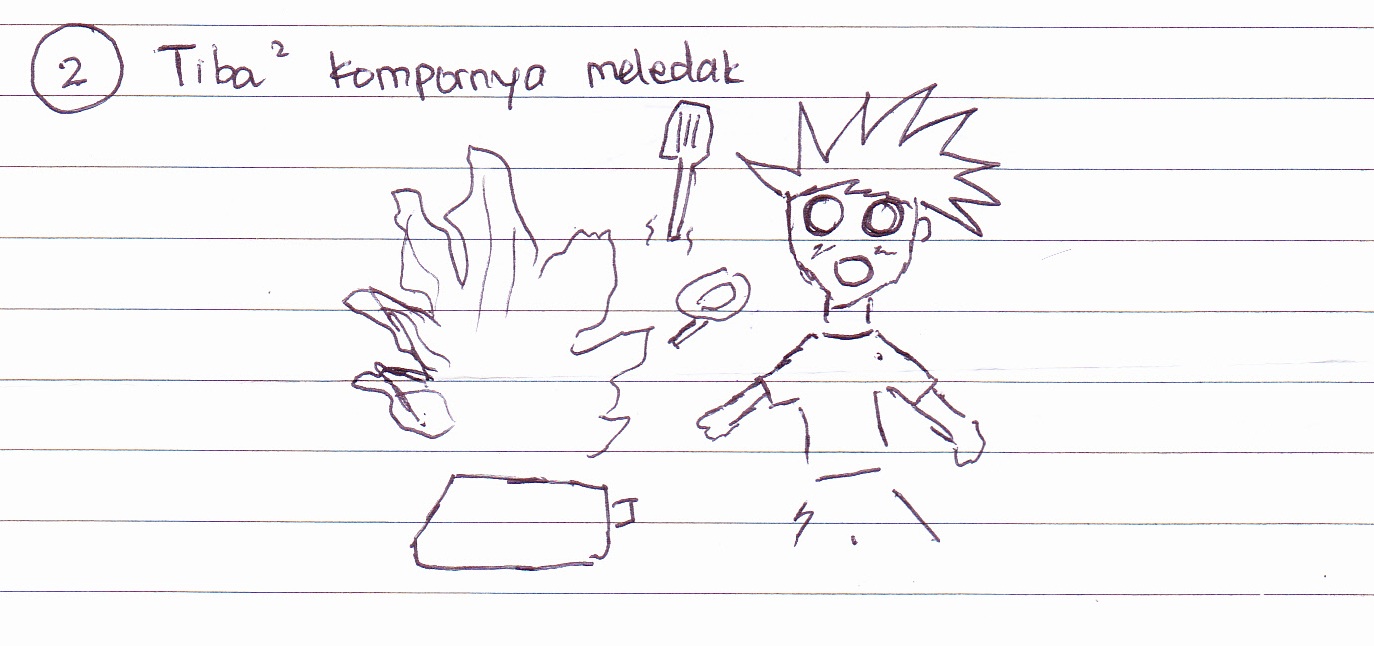 2 Tiba² kompornya meledak